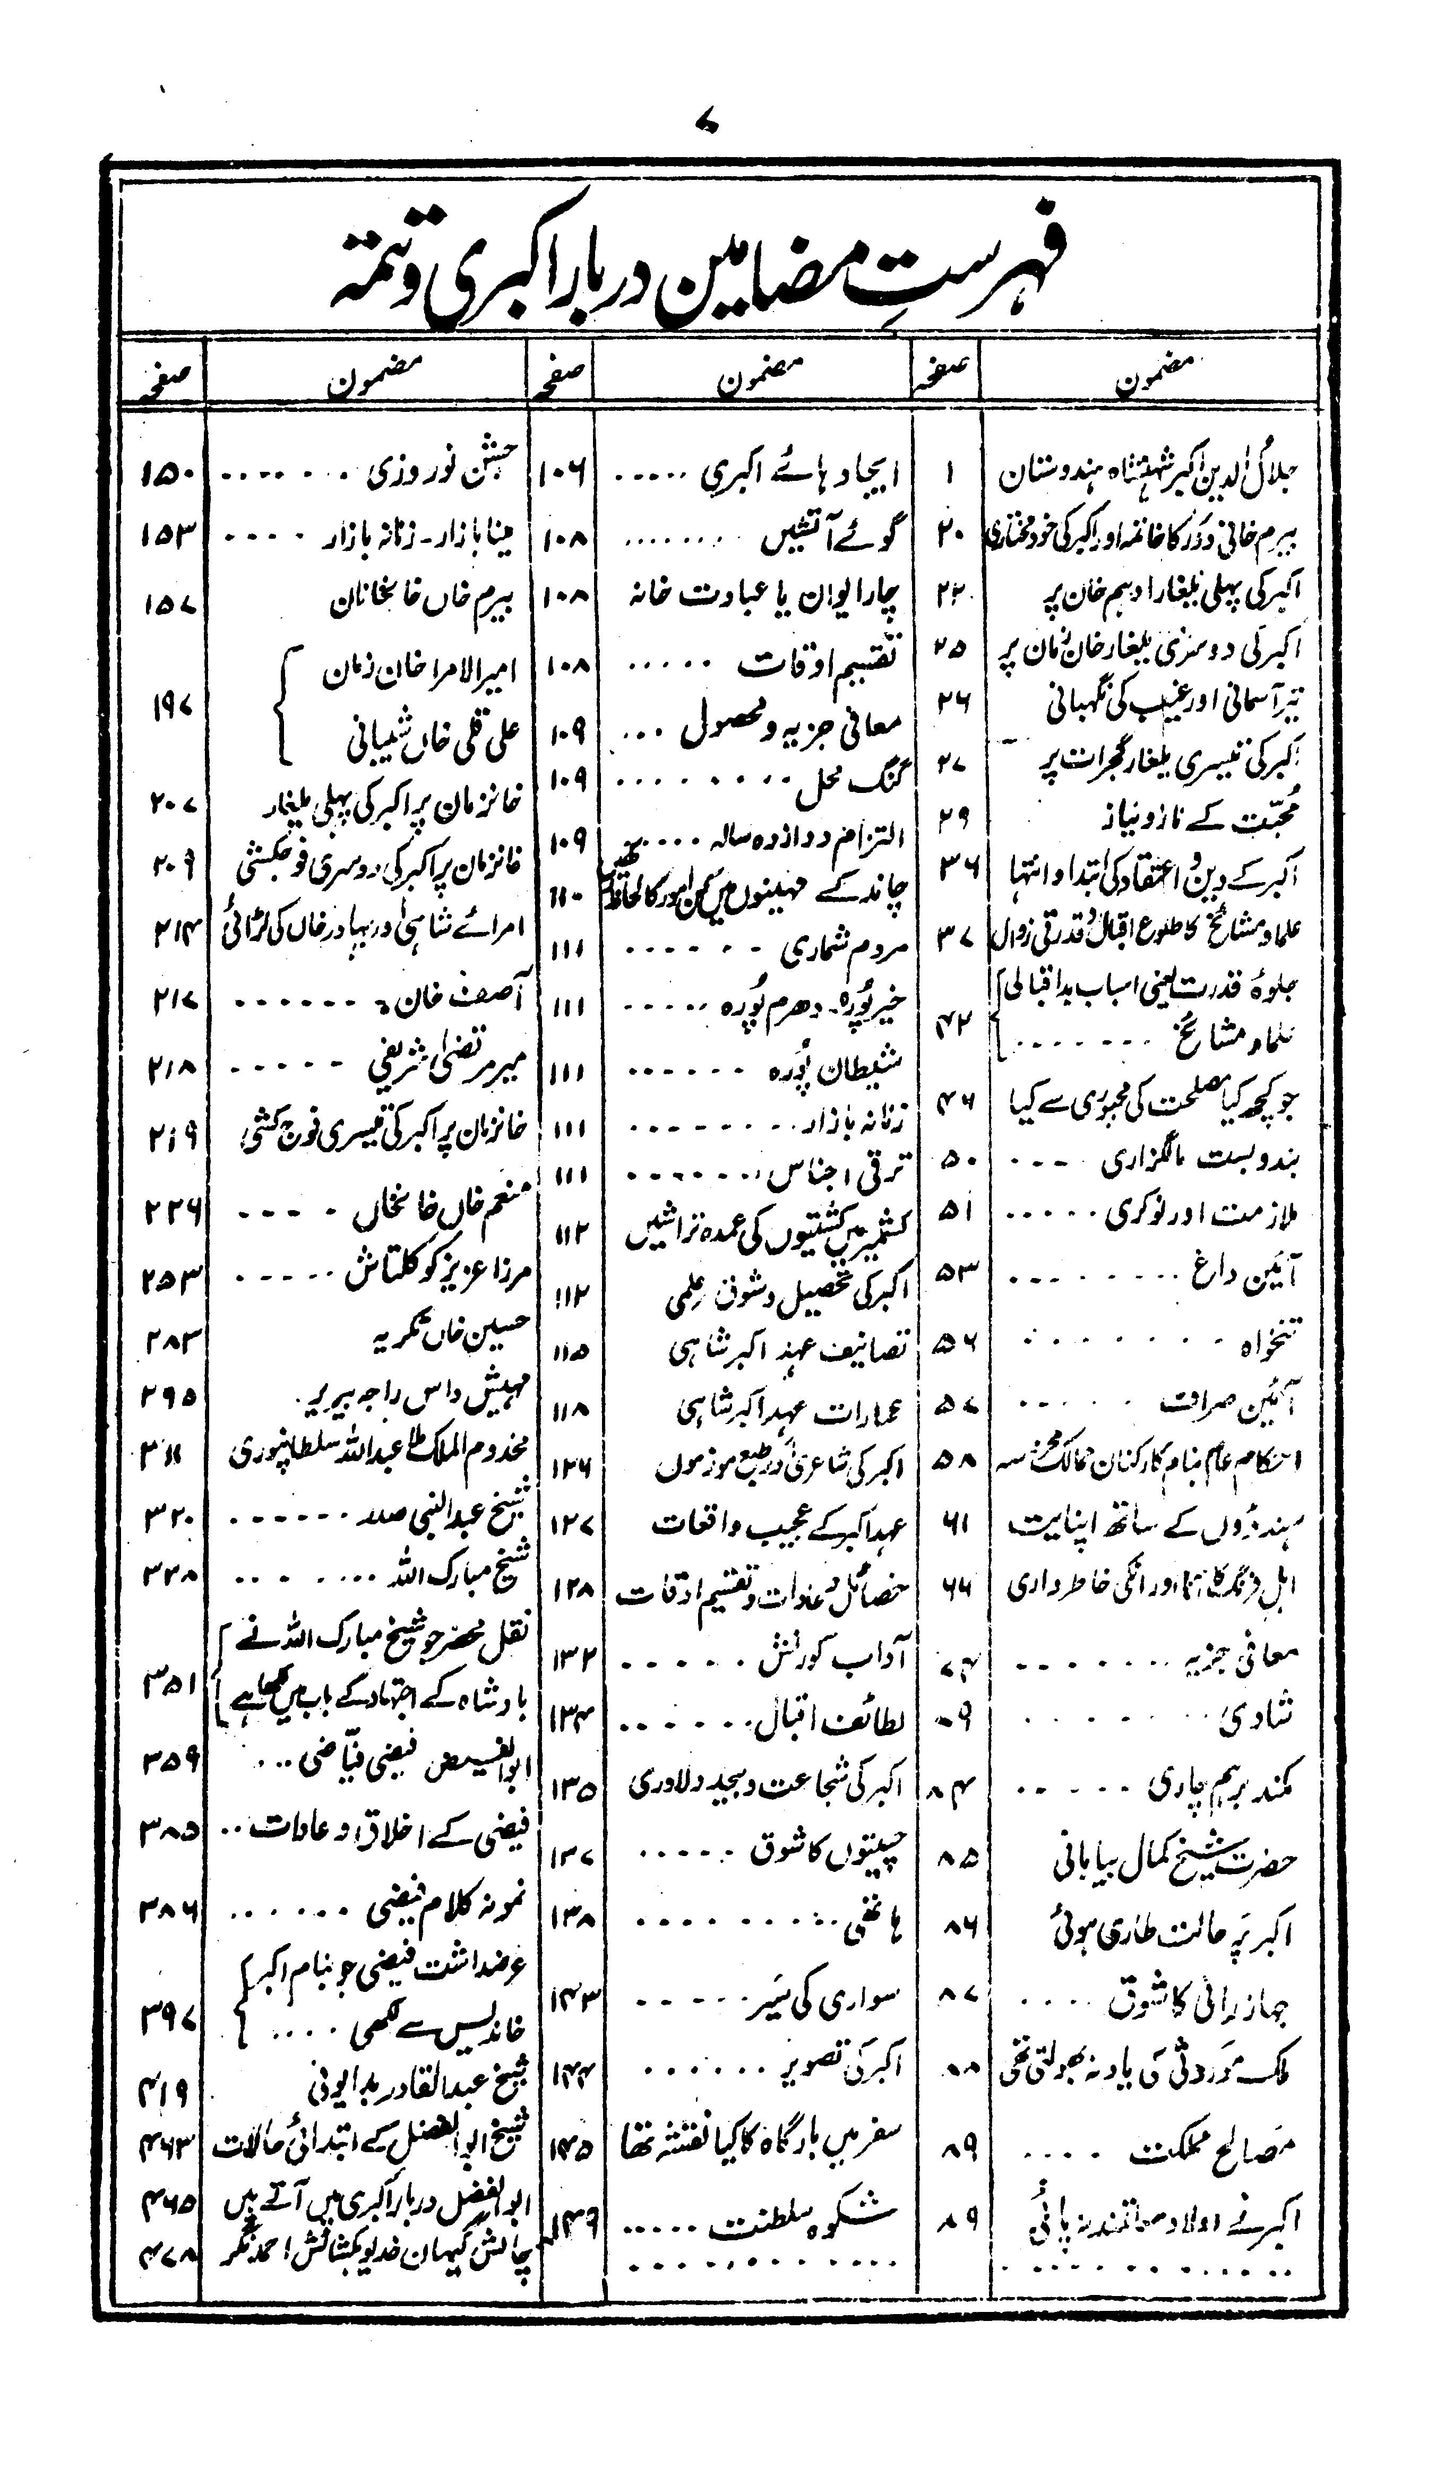 ۷
فہرستِ مضامین دربار اکبری و تتمہ
مضمون صفحہ
جلال الدین اکبر شہنشاہ ہندوستان ۱
بیرم خانی دور کا خاتمہ اور اکبر کی خود مختاری ۲۰
اکبر کی پہلی یلغار ادہم خان پر ۲۲
اکبر کی دوسری یلغار خان زمان پر ۲۵
تیر آسمانی اور غیب کی نگہبانی ۲۶
اکبر کی تیسری یلغار گجرات پر ۲۷
محبّت کے ناز و نیاز ۲۹
اکبر کے دین و اعتقاد کی ابتدا و انتہا ۳۶
علما و مشائخ کا طلوع اقبال و قدرتی زوال ۳۷
جلوۂ قدرت یعنی اسباب بد اقبالی
علماء مشائخ ....... ۴۲
جو کچھ کیا مصلحت کی مجبوری سے کیا ۴۶
بندوبست مالگزاری ۔۔۔ ۵۰
ملازمت اور نوکری ..... ۵۱
آئین داغ ........ ۵۳
تنخواہ ........ ۵۶
آئین صراف ..... ۵۷
احکام عام بنام کارکنان ممالک محروسہ ۵۸
ہندؤوں کے ساتھ اپنایت ۶۱
اہل فرنگ کا آنا اور انکی خاطرداری ۶۶
معافی جزیہ ....... ۷۴
شادی ........
مکند برہم چاری ..... ۸۴
حضرت شیخ کمال بیابانی ۸۵
اکبر پر حالت طاری ہوئی ۸۶
جہاز رانی کا شوق .... ۸۷
ملک موروثی کی یاد نہ بھولتی تھی ۸۸
مصالح مملکت .... ۸۹
اکبر نے اولاد سعادتمند نہ پائی ۸۹
مضمون صفحہ
ایجاد ہائے اکبری ..... ۱۰۶
گوئے آتشیں ....... ۱۰۸
چار ایوان یا عبادت خانہ ۱۰۸
تقسیم اوقات ..... ۱۰۸
معافی جزیہ و محصول ... ۱۰۹
گنگ محل ........ ۱۰۹
التزام دوازدہ سالہ .... ۱۰۹
چاند کے مہینوں میں کن امور کا لحاظ تھا ۱۱۰
مردم شماری ...... ۱۱۱
خیر پُورہ ۔ دھرم پُورہ ..... ۱۱۱
شیطان پُورہ ...... ۱۱۱
زنانہ بازار ........ ۱۱۱
ترقی اجناس ....... ۱۱۱
کشمیر میں کشتیوں کی عمدہ تراشیں ۱۱۲
اکبر کی تحصیل و شوق علمی ۱۱۲
تصانیف عہد اکبر شاہی ۱۱۵
عمارات عہد اکبر شاہی ۱۱۸
اکبر کی شاعری اور طبع موزوں ۱۲۶
عہد اکبر کے عجیب واقعات ۱۲۷
خصائل و عادات و تقسیم اوقات ۱۲۸
آداب کورنش ...... ۱۳۲
لطائف اقبال ...... ۱۳۴
اکبر کی شجاعت و بیحد دلاوری ۱۳۵
چیتوں کا شوق ..... ۱۳۷
ہاتھی ......... ۱۳۸
سواری کی سیر ..... ۱۴۳
اکبر کی تصویر ...... ۱۴۴
سفر میں بارگاہ کا کیا نقشہ تھا ۱۴۵
شکوہ سلطنت ..... ۱۴۹
مضمون صفحہ
جشن نوروزی ....... ۱۵۰
مینا بازار ۔ زنانہ بازار .... ۱۵۳
بیرم خاں خانخانان ۱۵۷
امیر الامرا خان زمان
علی قلی خاں شیبانی ۱۹۷
خانزمان پر اکبر کی پہلی یلغار ۲۰۷
خانزمان پر اکبر کی دوسری فوجکشی ۲۰۹
امرائے شاہی اور بہادر خاں کی لڑائی ۲۱۴
آصف خان ...... ۲۱۷
میر مرتضیٰ شریفی ..... ۲۱۸
خانزمان پر اکبر کی تیسری فوج کشی ۲۱۹
منعم خاں خانخاں .... ۲۲۶
مرزا عزیز کوکلتاش ..... ۲۵۳
حسین خاں ٹکریہ ۲۸۳
مہیش داس راجہ بیربر ۲۹۵
مخدوم الملک ملا عبداللہ سلطانپوری ۳۱۱
شیخ عبدالنبی صدر ...... ۳۲۰
شیخ مبارک اللہ ...... ۳۲۸
نقل محضر جو شیخ مبارک اللہ نے
بادشاہ کے اجتہاد کے باب میں لکھا ہے ۳۵۱
ابو الفیض فیضی فیّاضی ... ۳۵۹
فیضی کے اخلاق و عادات .. ۳۸۵
نمونہ کلام فیضی ...... ۳۸۶
عرضداشت فیضی جو بنام اکبر
خاندیس سے لکھی .... ۳۹۷
شیخ عبدالقادر بدایونی ۴۱۹
شیخ ابوالفضل کے ابتدائی حالات ۴۶۳
ابوالفضل دربار اکبری میں آتے ہیں ۴۶۵
چالش کیہان خدیو بکشائش احمد نگر ۴۷۸